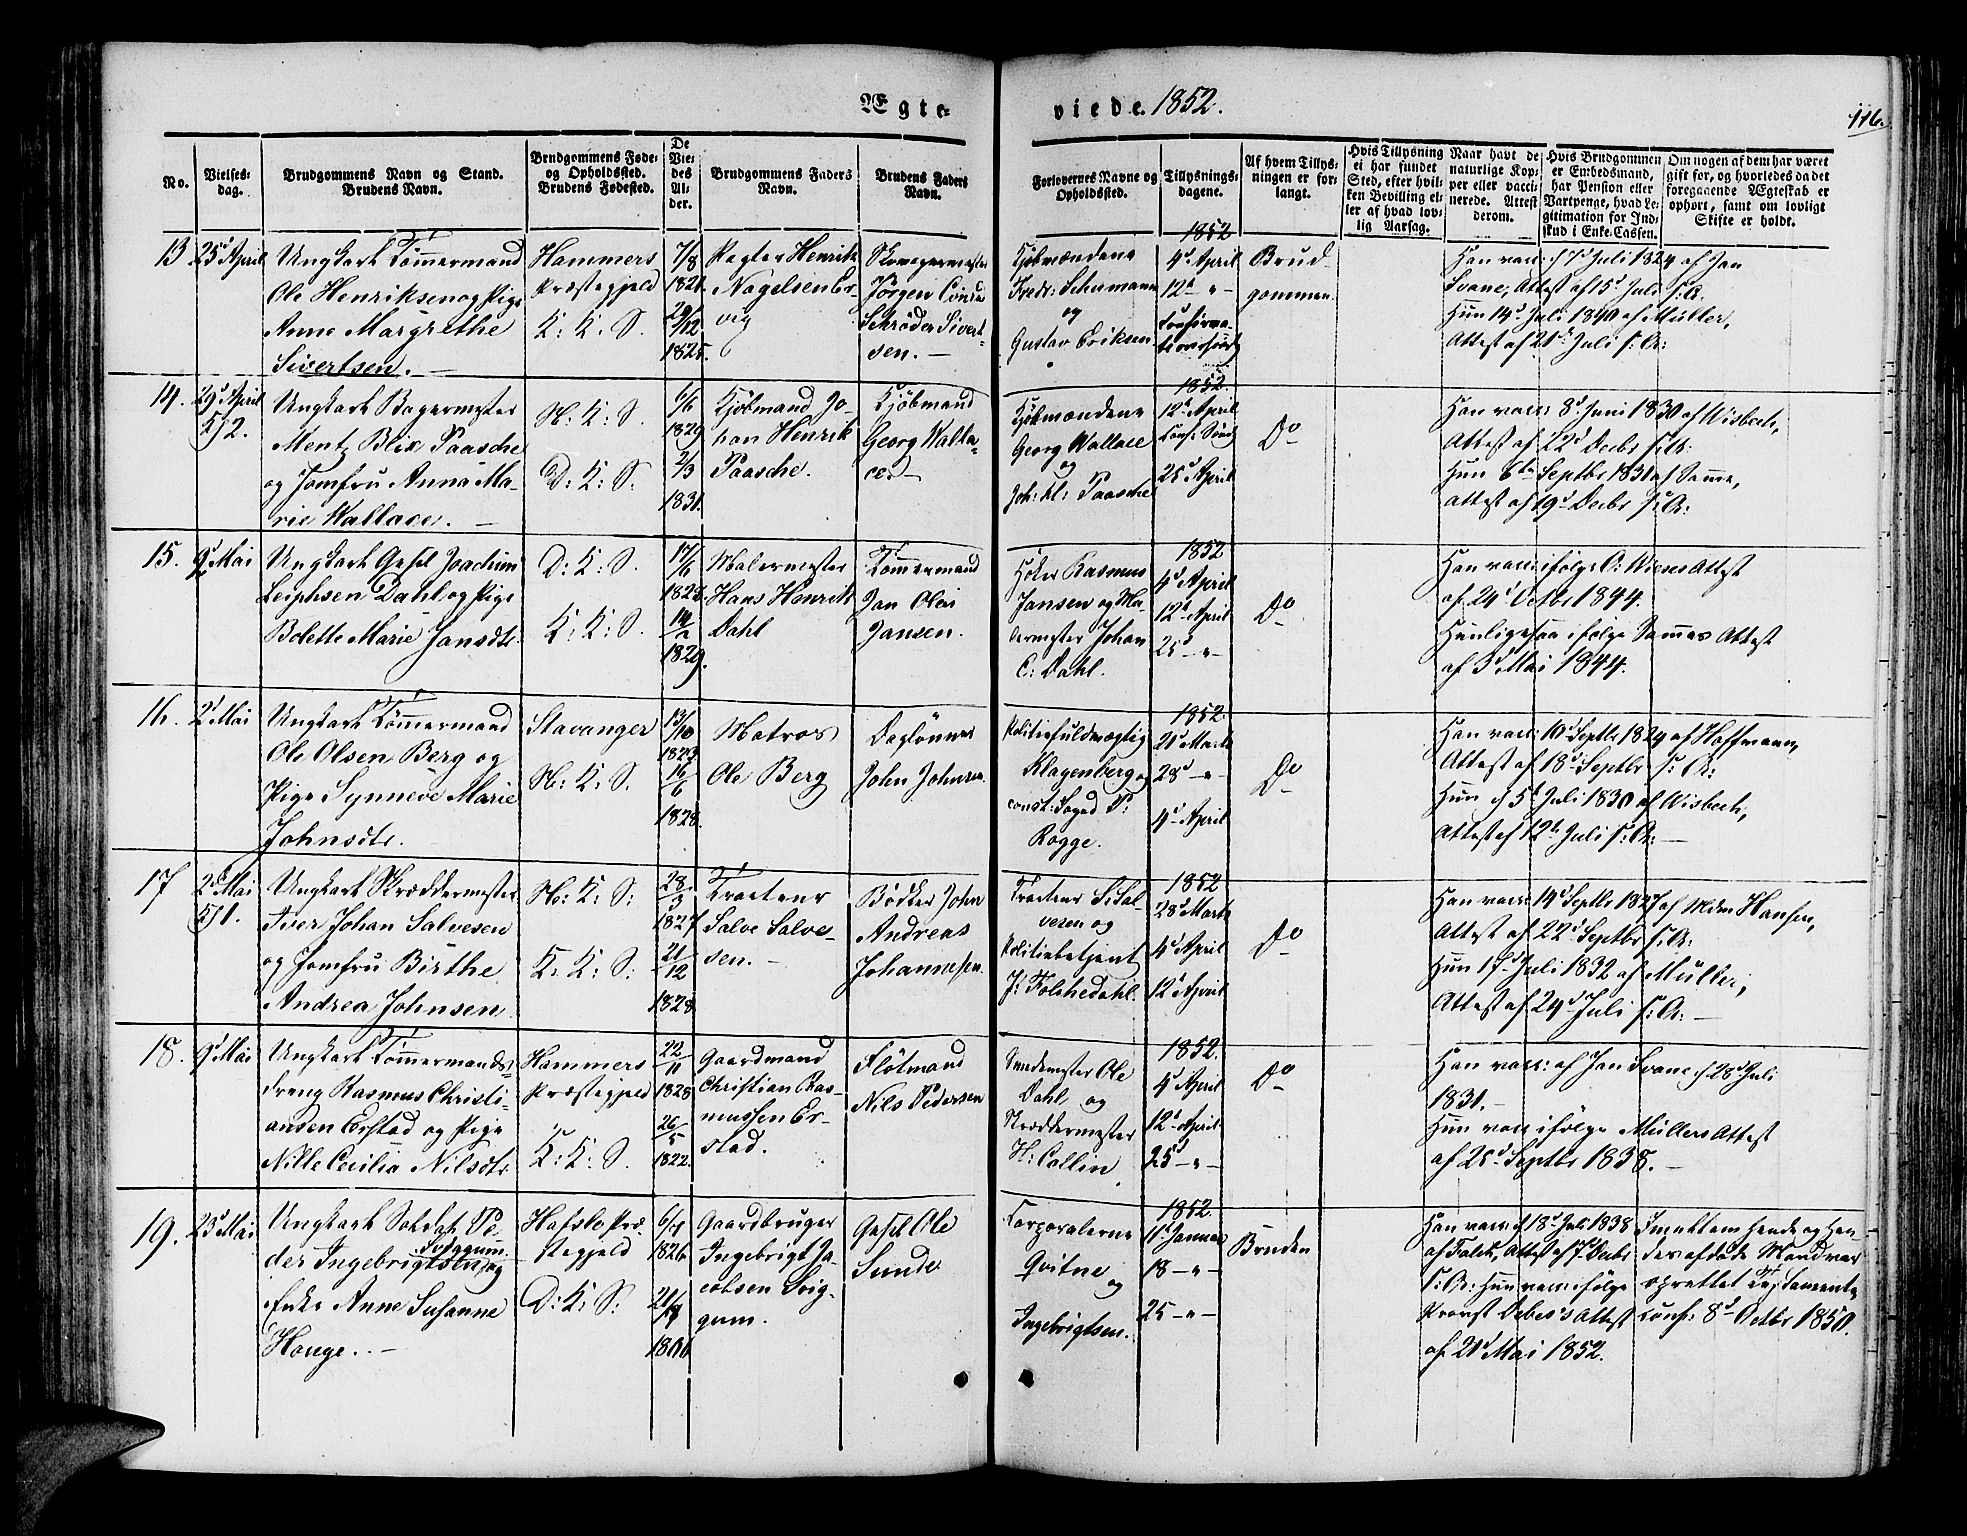 Ægte-
viede. 1852.
116.
No.
Vielses-
dag.
Brudgommens Navn og Stand.
Brudens Navn.
Brudgommens Føde-
og Opholdssted.
Brudens Fødested.
De
Vie-
des
Al-
der.
Brudgommens Faders
Navn.
Brudens Faders
Navn.
Forlovernes Navne og
Opholdssted.
Tillysnings-
dagene.
Af hvem Tillys-
ningen er for-
langt.
Hvis Tillysning
ei har fundet
Sted, efter hvil-
ken Bevilling el-
ler af hvad lov-
lig Aarsag.
Naar havt de
naturlige Kop-
per eller vacci-
nerede. Attest
derom.
Hvis Brudgommen
er Embedsmand,
har Pension eller
Vartpenge, hvad Le-
gitimation for Ind-
skud i Enke-Cassen.
Om nogen af dem har været
gift før, og hvorledes da det
foregaaende Ægteskab er
ophørt, samt om lovligt
Skifte er holdt.
13
25d April
Ungkarl Tømmermand
Ole Henriksen og Pige
Anne Margrethe
Sivertsen. —
Hammers
Præstegjeld
K: K: S.
7/8
1821.
20/12
1825.
Pagter Henrik
Nagelsen Er-
vig
Skomagermester
Jørgen
Schrøder Sivert-
sen. —
Kjøbmændene
Fredr: Schumann
og
Gustav Eriksen
1852
4d April
12te "
Confirma-
tionssønd
Brud-
gommen.
Han vacc: d 7d Juli 1824 af Jan
Svane, Attest af 15d Juli s: A.
Hun 14d Juli 1840 af Müller,
Attest af 21d Juli s: A:
14.
29d April
5/2.
Ungkarl Bagermester
Mentz Blix Paasche
og Jomfru Anna Ma-
rie Wallace. —
N: K: S.
D: K: S.
6/6
1829
2/3
1831.
Kjøbmand Jo-
han Henrik
Paasche.
Kjøbmand
Georg Walla-
ce. —
Kjøbmændene
Georg Wallace
og
Joh: Kl: Paasche
1852.
12te April
Conf: Sønd
25d April
Do
Han vacc: 8d Juni 1830 af Wisbech,
Attest af 22d Decbr s: A:
Hun 6te Septbr 1831 af Samme,
Attest af 19d Decbr s: A:
15.
9d Mai
Ungkarl Gesel Joachim
Leiphsen Dahl og Pige
Bolette Marie Jansdtr.
D: K: S.
K: K: S.
17/6
1828.
1829.
Malermester
Hans Henrik
Dahl
Tømmermand
Jan Olai
Jansen.
Høker Rasmus
Jansen og Ma-
lermester Johan
C: Dahl.
1852
4d April
12te April
25d — " —
Do
Han vacc: ifølge O: Wiens Attest
af 24d Octbr 1844.
Hun ligesaa ifølge Sammes Attest
af 3d Mai 1844.
16.
2d Mai
Ungkarl Tømmermand
Ole Olsen Berg og
Pige Synneve Marie
Johnsdtr.
Stavanger
N: K: S.
13/10
1823
16/6
1828.
Matros
Ole Berg
Daglønner
John Johnsen
Politiefuldmægtig
Klagenberg og
const: Foged P:
Rogge.
1852.
21d Marts
28d — "
4d April
Do
Han vacc: 10d Septbr 1824 af Hoffmann,
Attest af 18d Septbr s: A:
Hun d 5d Juli 1830 af Wisbech,
Attest af 12te Juli s: A: —
17
2d Mai
5/1.
Ungkarl Skræddermester
Iver Johan Salvesen
og Jomfru Birthe
Andrea Johnsen
N: K: S:
K: K: S:
28/3
1827
21/12
1828.
Tracteur
Salve Salve-
sen. —
Bødker John
Andreas
Johannesen
Tracteur S: Sal-
vesen og
Politiebetjent
J: Folchedahl.
1852
28d Marts
4d April
12te April
Do
Han vacc: 14d Septbr 1827 af Mdm Hansen,
Attest af 22d Septbr s: A:
Hun 17d Juli 1832 af Müller,
Attest af 24d Juli s: A: —
18.
9d Mai
Ungkarl Tømmermands-
dreng Rasmus Christi-
ansen Erstad og Pige
Nille Cecilia Nilsdtr
Hammers
Præstegjeld
K: K: S.
22/11
1828
26/5
1822.
Gaardmand
Christian Ras-
mussen Er-
stad.
Flotmand
Nils Pedersen
Smedemester Ole
Dahl og
Skræddermester
H: Collin.
1852.
4d April
12te April
25d — " —
Do
Han vacc: af Jan Svane d 28d Juli
1831. —
Hun vacc ifølge Müllers Attest
af 25d Septbr 1838. —
19.
23d Mai
Ungkarl Soldat Pe-
Sviggum
der Ingebrigtsen og
Enke Anne Susanne
Houge. . —
Hafslo Præ-
stegjeld
D: K: S:
1826
1806
Gaardbruger
Ingebrigt Ja-
cobsen Svig-
gum.
Gesel Ole
Sunde
Corporalerne
Qvitne
og
Ingebrigtsen.
1852.
11d Januar
18 — " —
25 — " —
Bruden
Han vacc: d 18d Juli 1838
af Falck, Attest af 7d Decbr
s: A: Hun vacc: ifølge
Provst Debes's Attest
af 21d Mai 1852.
Imellem hende og hen-
des afdøde Mand var
oprettet Testament,
Conf: 8d Octbr 1850.